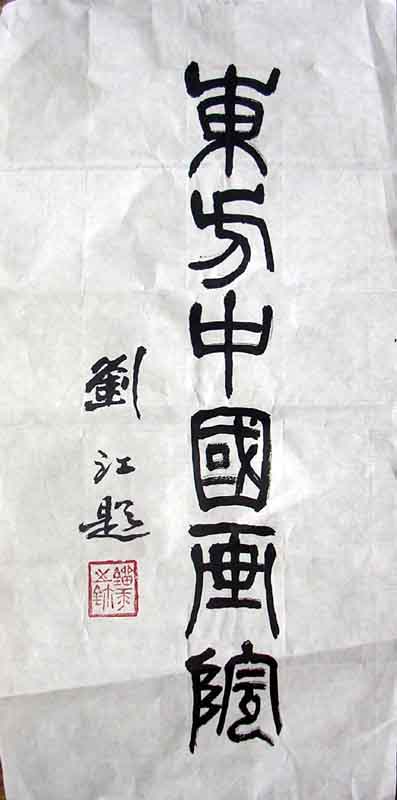 東方中國画院
劉江題